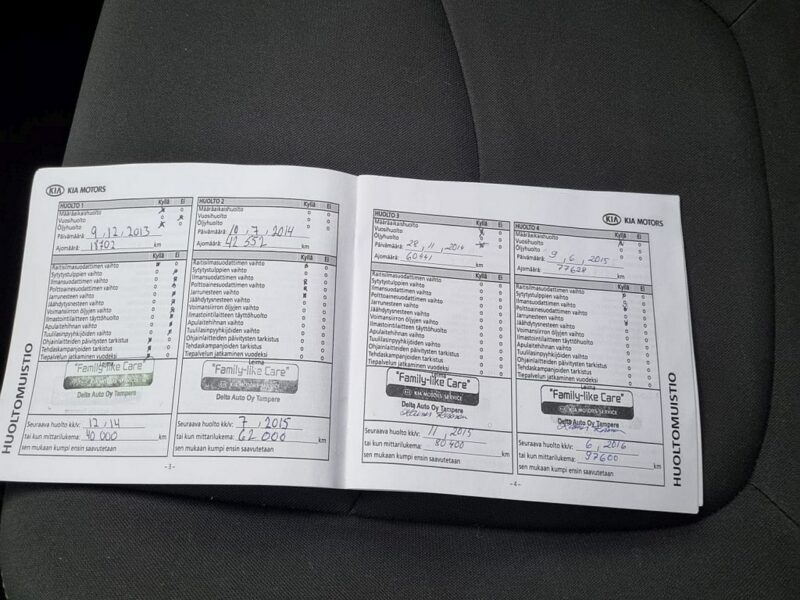 KIA KIA MOTORS
HUOLTOMUISTIO
HUOLTO 1 Kyllä Ei
Määräaikaishuolto
Vuosihuolto
Öljyhuolto
Päivämäärä: 9,12,2013
Ajomäärä: 18702 km
Kyllä Ei
Raitisilmasuodattimen vaihto
Sytytystulppien vaihto
Ilmansuodattimen vaihto
Polttoainesuodattimen vaihto
Jarrunesteen vaihto
Jäähdytysnesteen vaihto
Voimansiirron öljyjen vaihto
Ilmastointilaitteen täyttöhuolto
Apulaitehihnan vaihto
Tuulilasinpyyhkijöiden vaihto
Ohjainlaitteiden päivitysten tarkistus
Tehdaskampanjoiden tarkistus
Tiepalvelun jatkaminen vuodeksi
"Family-like Care"
Seuraava huolto kk/v: 12,14
tai kun mittarilukema: 40 000 km
sen mukaan kumpi ensin saavutetaan
HUOLTO 2 Kyllä Ei
Määräaikaishuolto
Vuosihuolto
Öljyhuolto
Päivämäärä: 10,7,2014
Ajomäärä: 42 552 km
Kyllä Ei
Raitisilmasuodattimen vaihto
Sytytystulppien vaihto
Ilmansuodattimen vaihto
Polttoainesuodattimen vaihto
Jarrunesteen vaihto
Jäähdytysnesteen vaihto
Voimansiirron öljyjen vaihto
Ilmastointilaitteen täyttöhuolto
Apulaitehihnan vaihto
Tuulilasinpyyhkijöiden vaihto
Ohjainlaitteiden päivitysten tarkistus
Tehdaskampanjoiden tarkistus
Tiepalvelun jatkaminen vuodeksi
Leima
"Family-like Care"
KIA MOTORS SERVICE
Delta Auto Oy Tampere
Seuraava huolto kk/v: 7,2015
tai kun mittarilukema: 62 000 km
sen mukaan kumpi ensin saavutetaan
-3-
KIA KIA MOTORS
HUOLTO 3 Kyllä Ei
Määräaikaishuolto
Vuosihuolto
Öljyhuolto
Päivämäärä: 28,11,2014
Ajomäärä: 60441 km
Kyllä Ei
Raitisilmasuodattimen vaihto
Sytytystulppien vaihto
Ilmansuodattimen vaihto
Polttoainesuodattimen vaihto
Jarrunesteen vaihto
Jäähdytysnesteen vaihto
Voimansiirron öljyjen vaihto
Ilmastointilaitteen täyttöhuolto
Apulaitehihnan vaihto
Tuulilasinpyyhkijöiden vaihto
Ohjainlaitteiden päivitysten tarkistus
Tehdaskampanjoiden tarkistus
Tiepalvelun jatkaminen vuodeksi
Leima
"Family-like Care"
KIA MOTORS SERVICE
Delta Auto Oy Tampere
Seuraava huolto kk/v: 11,2015
tai kun mittarilukema: 80 400 km
sen mukaan kumpi ensin saavutetaan
HUOLTO 4 Kyllä Ei
Määräaikaishuolto
Vuosihuolto
Öljyhuolto
Päivämäärä: 9,6,2015
Ajomäärä: 77628 km
Kyllä Ei
Raitisilmasuodattimen vaihto
Sytytystulppien vaihto
Ilmansuodattimen vaihto
Polttoainesuodattimen vaihto
Jarrunesteen vaihto
Jäähdytysnesteen vaihto
Voimansiirron öljyjen vaihto
Ilmastointilaitteen täyttöhuolto
Apulaitehihnan vaihto
Tuulilasinpyyhkijöiden vaihto
Ohjainlaitteiden päivitysten tarkistus
Tehdaskampanjoiden tarkistus
Tiepalvelun jatkaminen vuodeksi
Leima
"Family-like Care"
KIA MOTORS SERVICE
Delta Auto Oy Tampere
Seuraava huolto kk/v: 6,2016
tai kun mittarilukema: 97600 km
sen mukaan kumpi ensin saavutetaan
-4-
HUOLTOMUISTIO